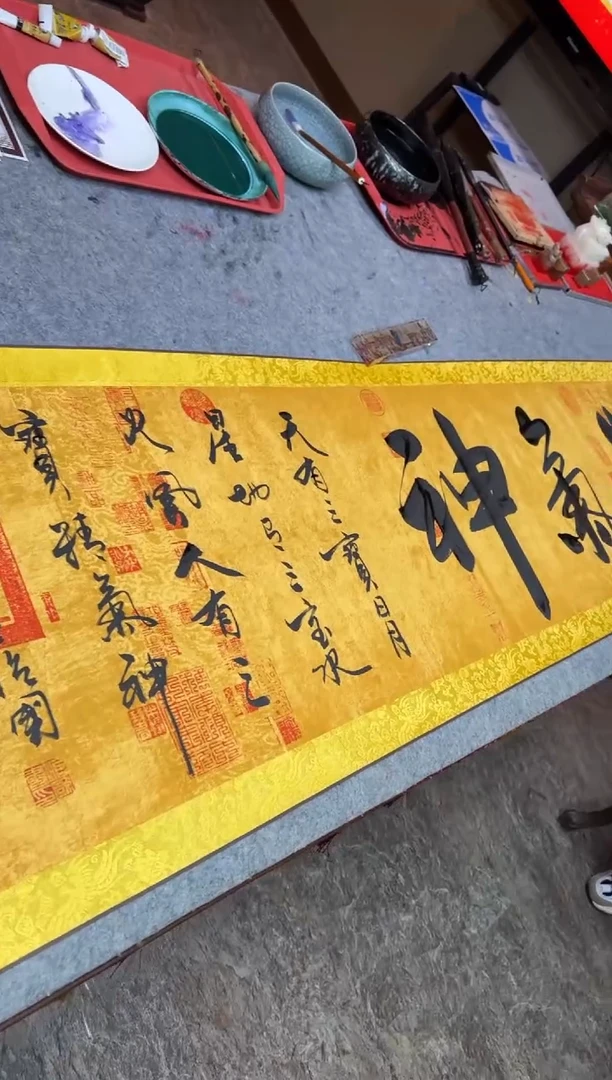 氣神
天有三寶日月
星地有三宝水
火風人有三
寶精氣神
國